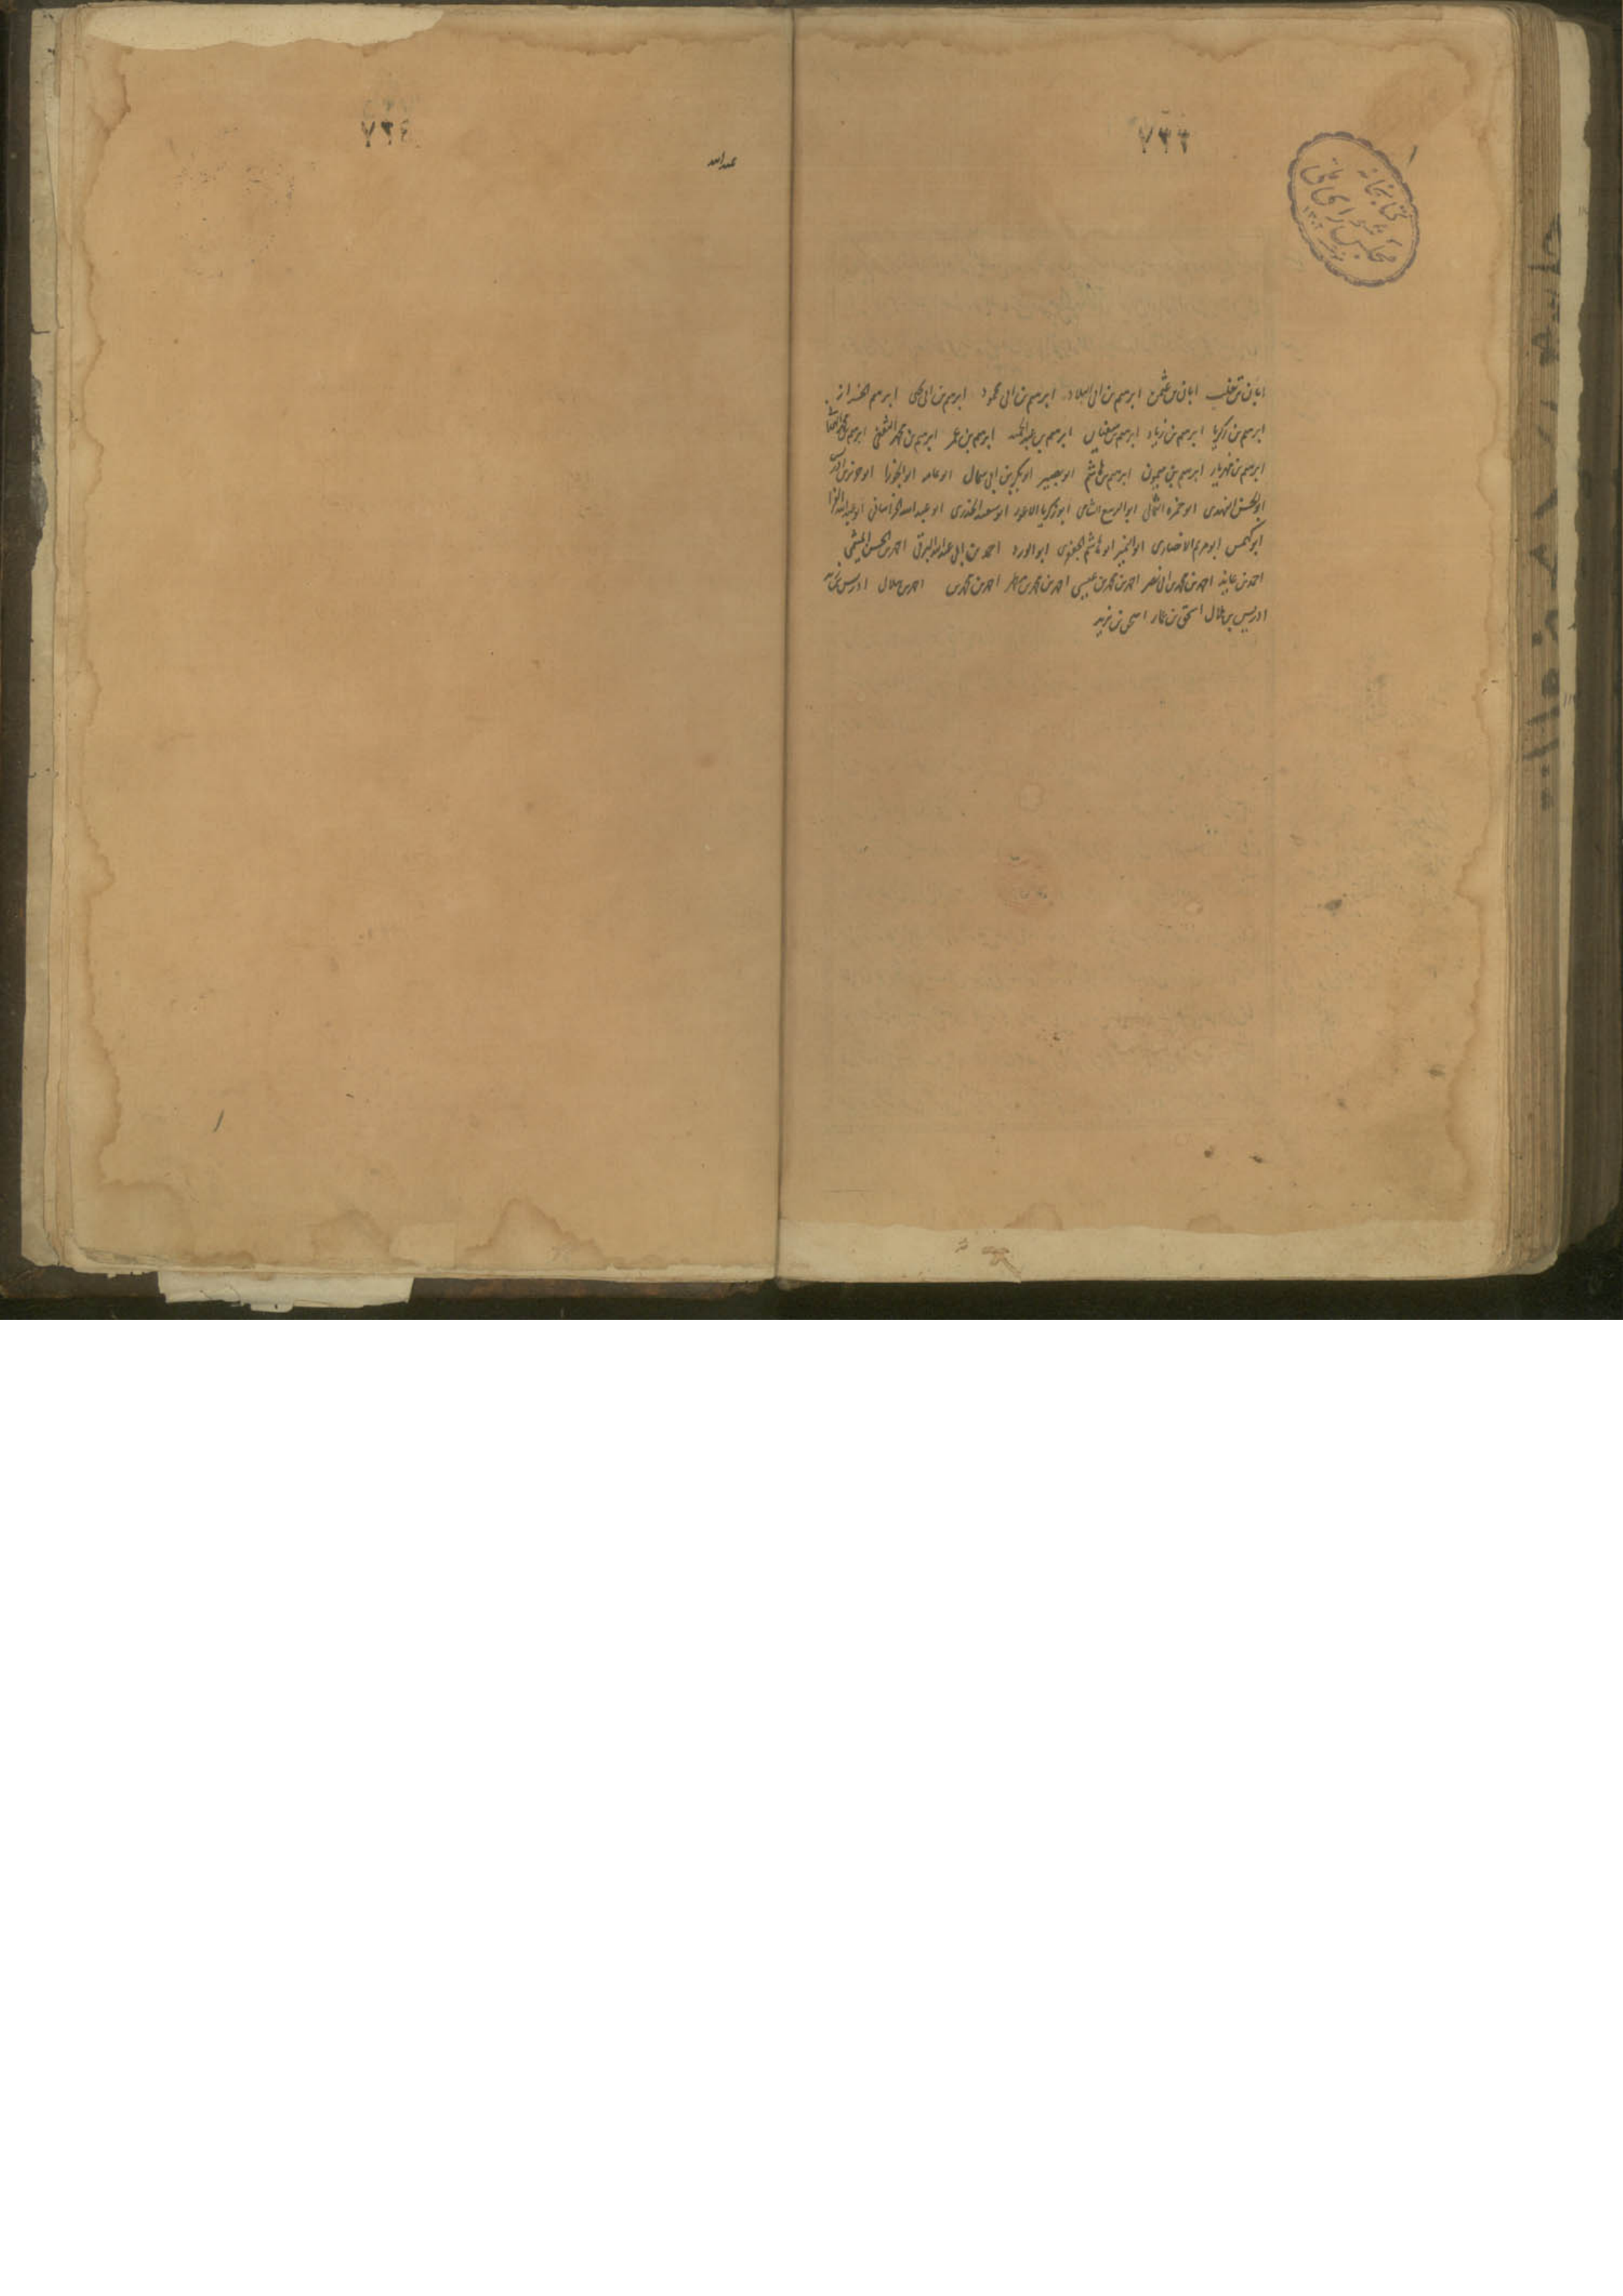 ۷۳۲
کتابخانه
مجلس شورای ملی
ابان بن تغلب ابان بن عثمن ابرهیم بن ابی البلاد ابرهیم بن ابی محمود ابرهیم بن ابی یحیی ابرهیم الخزاز
ابرهیم بن زکریا ابرهیم بن زیاد ابرهیم بن سفیان ابرهیم بن عبدالحمید ابرهیم بن عمر ابرهیم بن محمد الثقفی ابرهیم بن محمد
ابرهیم بن مهزیار ابرهیم بن میمون ابرهیم بن هاشم ابو بصیر ابوبکر بن ابی سمال ابو ابو الجوزا ابو
ابو الحسن النهدی ابو حمزه الثمالی ابو الربیع الشامی ابو زکریا الاعور ابو سعید الخدری ابو عبد الله الخراسانی ابو عبد الله
ابو کهمس ابو مریم الانصاری ابو النمیر ابو هاشم الجعفری ابو الورد احمد بن ابی عبد الله البرقی احمد بن الحسن المیثمی
احمد بن عایذ احمد بن محمد بن ابی نصر احمد بن محمد بن عیسی احمد بن محمد بن احمد بن محمد بن احمد بن هلال ادریس بن
ادریس بن هلال اسحق بن عمار اسحق بن یزید
عبدالله